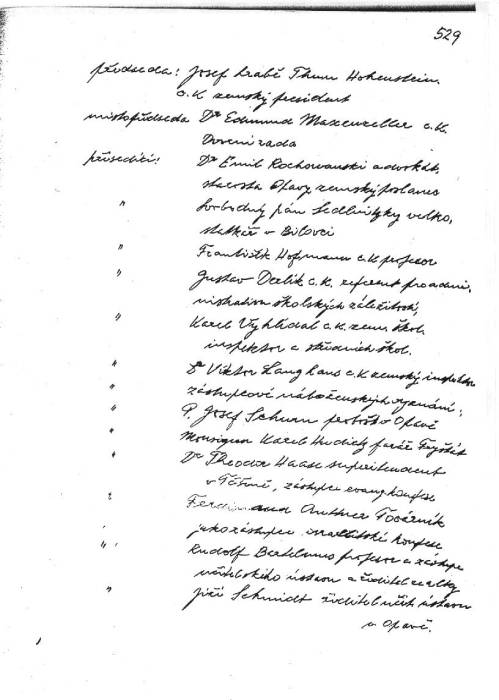 529
předseda: Josef hrabě Thun Hohenstein
c.k. zemský president
místopředseda Dr Edmund Maxenzeller c.k.
Dvorní rada
přísedící: Dr Emil Rochowanski advokát,
starosta Opavy, zemský poslanec
" Svobodný pán Sedlnitzky velko,
statkář v Bílovci
" František Hofmann c.k. profesor
" Gustav c.k. referent pro admi,
nistrativu školských záležitostí,
" Karel Vyhlídal c.k. zem. škol.
inspektor a středních škol.
" Dr Viktor Langhans c.k. zemský inspektor
" zástupcové náboženských vyznání:
" P. Josef Schum probošt v Opavě
" Monsignor Karel Hudietz farář Fryštát
" Dr Theodor Haase superitendent
v Těšíně, zástupce evang konfese
" Ferdinand Továrník
jako zástupce konfese
" " Rudolf profesor a zástupce
učitelského ústavu a ředitel
" Jiří Schmidt ředitel učit. ústavu
v Opavě.